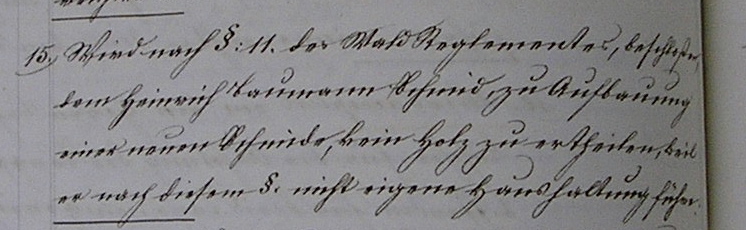 15. Wird nach §: 11. des Wald Reglementes, beschloßen,
dem Heinrich Baumann Schmid, zu Aufbauung
einer neuen Schmide, kein Holz zu ertheilen, weil
er nach diesem §. nicht eigene Haushaltung führe.